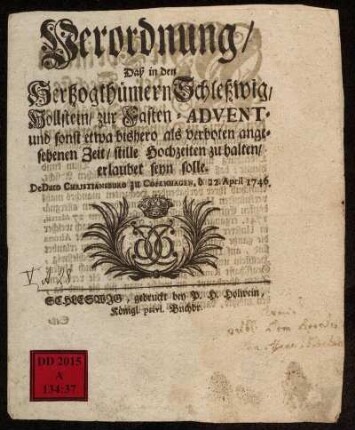 Verordnung/
Daß in den
Hertzogthümern Schleßwig/
Hollstein/ zur Fasten - ADVENT-
und sonst etwa bishero als verboten ange-
sehenen Zeit/ stille Hochzeiten zu halten/
erlaubet seyn solle.
DeDato CHRISTIANSBURG ZU COPENHAGEN, d. 22. April 1746.
SCHLESWIG, gedruckt bey P. H. Holwein,
Königl. privil. Buchdr.
DD 2015
A
134:37